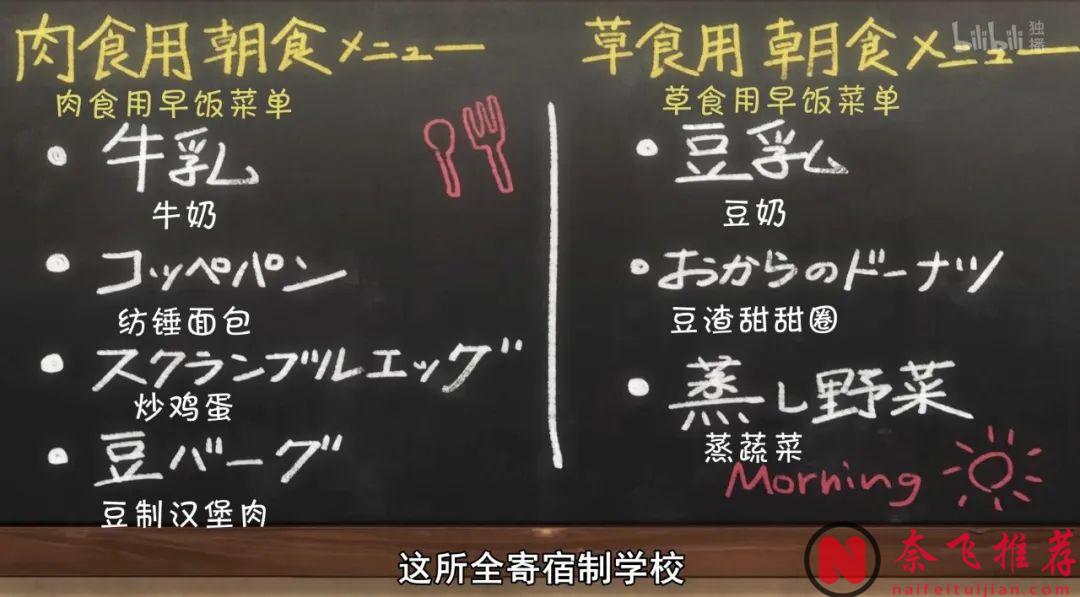 肉食用朝食メニュー
肉食用早饭菜单
・牛乳
牛奶
・コッペパン
纺锤面包
・スクランブルエッグ
炒鸡蛋
・豆バーグ
豆制汉堡肉
草食用朝食メニュー
草食用早饭菜单
・豆乳
豆奶
・おからのドーナツ
豆渣甜甜圈
・蒸し野菜
蒸蔬菜
Morning
bilibili 独播
这所全寄宿制学校
N 奈飞推荐
naifeituijian.com